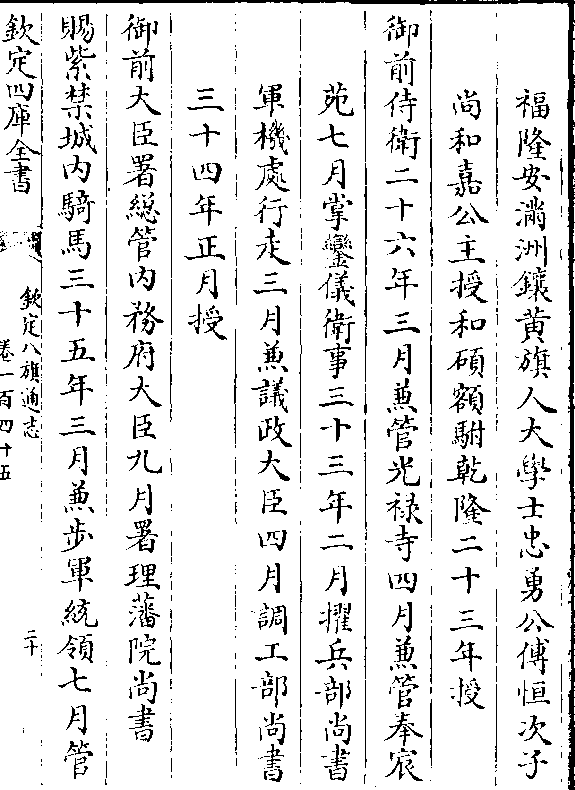 福隆安滿洲鑲黃旗人大學士忠勇公傅恒次子
尚和嘉公主授和碩額駙乾隆二十三年授
御前侍衛二十六年三月兼管光祿寺四月兼管奉宸
苑七月掌鑾儀衛事三十三年二月擢兵部尚書
軍機處行走三月兼議政大臣四月調工部尚書
三十四年正月授
御前大臣署總管內務府大臣九月署理藩院尚書
賜紫禁城內騎馬三十五年三月兼步軍統領七月管
欽定四庫全書
欽定八旗通志
卷一百四十五
二十